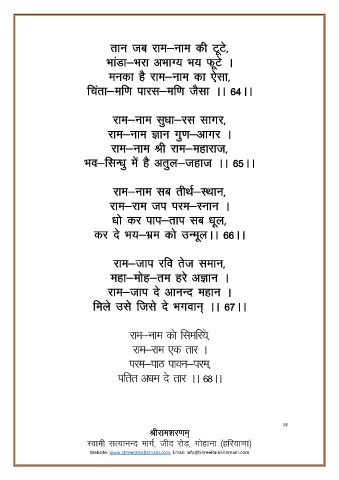 तान जब राम–नाम की टूटे,
भांडा–भरा अभाग्य भय फूटे ।
मनका है राम–नाम का ऐसा,
चिंता–मणि पारस–मणि जैसा ।। 64।।
राम–नाम सुधा–रस सागर,
राम–नाम ज्ञान गुण–आगर ।
राम–नाम श्री राम–महाराज,
भव–सिन्धु में है अतुल–जहाज ।। 65।।
राम–नाम सब तीर्थ–स्थान,
राम–राम जप परम–स्नान ।
धो कर पाप–ताप सब धूल,
कर दे भय–भ्रम को उन्मूल।। 66।।
राम–जाप रवि तेज समान,
महा–मोह–तम हरे अज्ञान ।
राम–जाप दे आनन्द महान ।
मिले उसे जिसे दे भगवान् ।। 67।।
राम–नाम को सिमरिये,
राम–राम एक तार ।
परम–पाठ पावन–परम्,
पतित अधम दे तार ।। 68।।
18
श्रीरामशरणम्
स्वामी सत्यानन्द मार्ग, जींद रोड, गोहाना (हरियाणा)
Website: www.shreeramsharnam.com, Email: info@ShreeRamSharnam.com